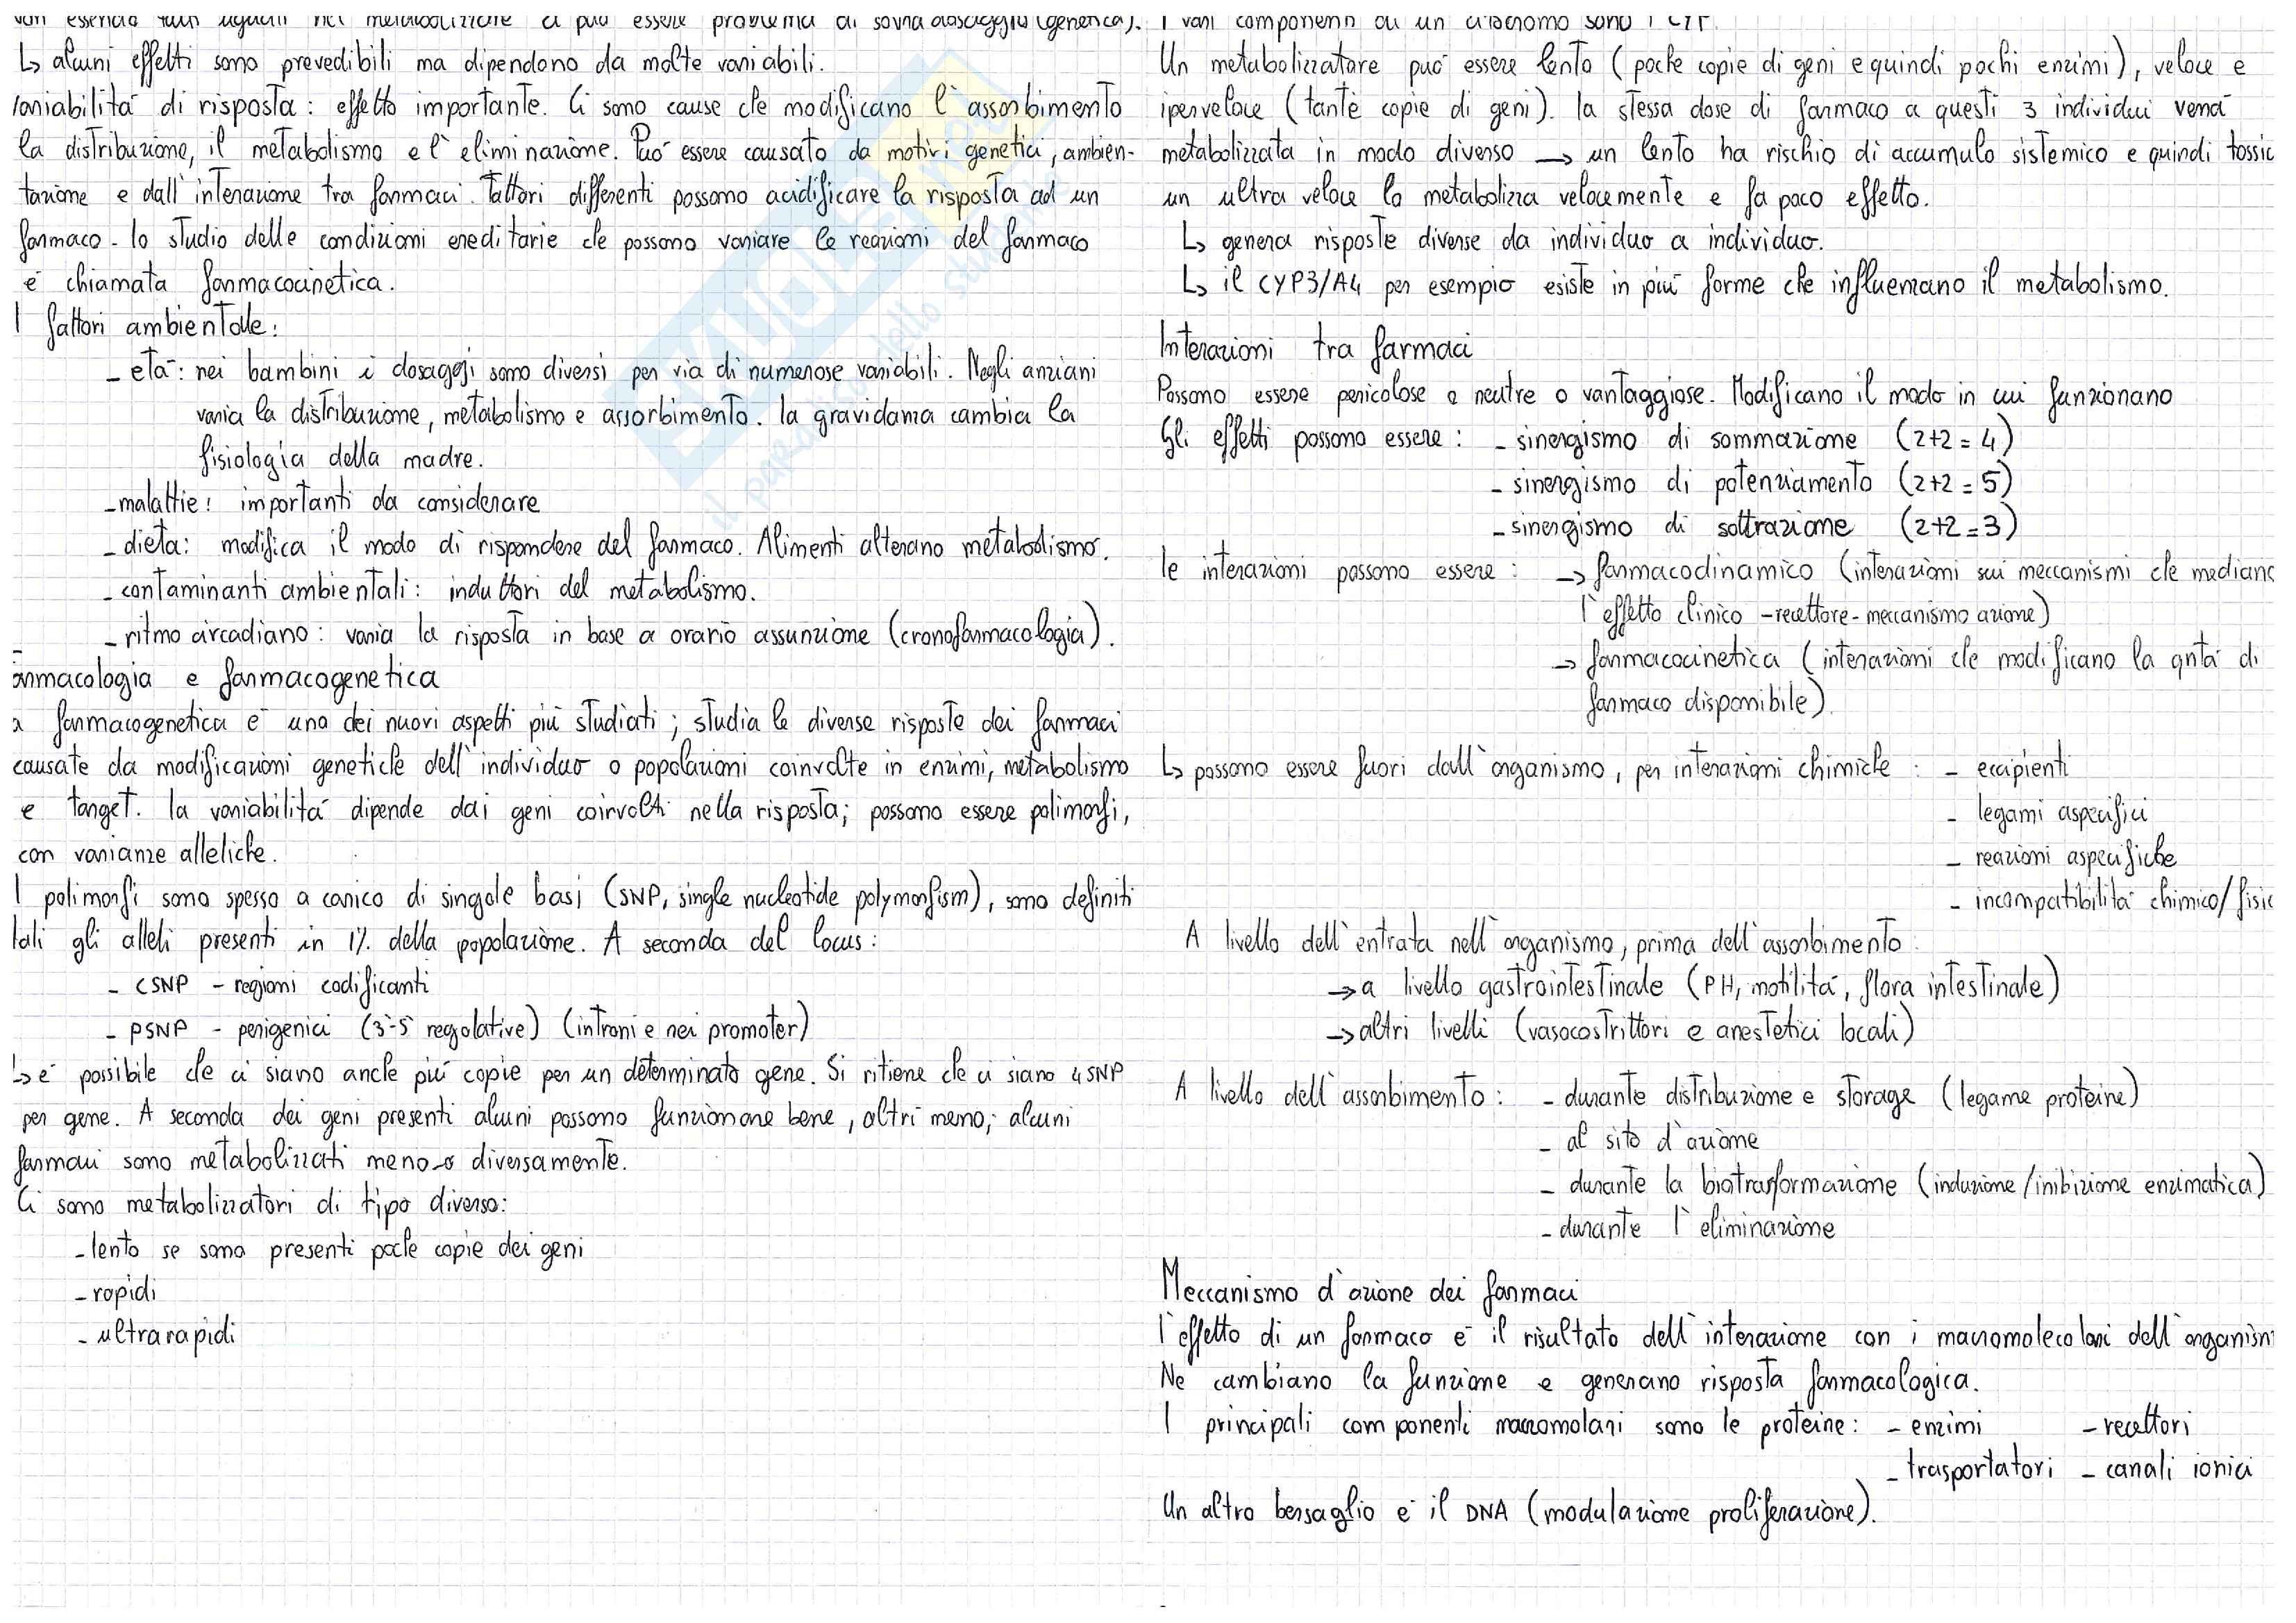 non essendo tutti uguali nel metabolizzare ci può essere problema di sovra dosaggio (genetica).
↳ alcuni effetti sono prevedibili ma dipendono da molte variabili.
variabilità di risposta: effetto importante. Ci sono cause che modificano l'assorbimento
la distribuzione, il metabolismo e l'eliminazione. Può essere causato da motivi genetici, ambien-
tazione e dall'interazione tra farmaci. Fattori differenti possono acidificare la risposta ad un
farmaco. lo studio delle condizioni ereditarie che possono variare le reazioni del farmaco
è chiamata farmacocinetica.
I fattori ambientale:
- età: nei bambini i dosaggi sono diversi per via di numerose variabili. Negli anziani
varia la distribuzione, metabolismo e assorbimento. la gravidanza cambia la
fisiologia della madre.
- malattie: importanti da considerare
- dieta: modifica il modo di rispondere del farmaco. Alimenti alterano metabolismo.
- contaminanti ambientali: induttori del metabolismo.
- ritmo circadiano: varia la risposta in base a orario assunzione (cronofarmacologia).
armacologia e farmacogenetica
a farmacogenetica è uno dei nuovi aspetti più studiati; studia le diverse risposte dei farmaci
causate da modificazioni genetiche dell'individuo o popolazioni coinvolte in enzimi, metabolismo
e target. la variabilità dipende dai geni coinvolti nella risposta; possono essere polimorfi,
con varianze alleliche.
I polimorfi sono spesso a carico di singole basi (SNP, single nucleotide polymorfism), sono definiti
tali gli alleli presenti in 1% della popolazione. A seconda del locus:
- cSNP - regioni codificanti
- pSNP - perigenici (3'-5' regolative) (introni e nei promoter)
↳ è possibile che ci siano anche più copie per un determinato gene. Si ritiene che ci siano 4 SNP
per gene. A seconda dei geni presenti alcuni possono funzionare bene, altri meno; alcuni
farmaci sono metabolizzati meno o diversamente.
Ci sono metabolizzatori di tipo diverso:
- lento se sono presenti poche copie dei geni
- rapidi
- ultrarapidi
I vari componenti di un citocromo sono i CYP.
Un metabolizzatore può essere lento (poche copie di geni e quindi pochi enzimi), veloce e
iperveloce (tante copie di geni). la stessa dose di farmaco a questi 3 individui verrà
metabolizzata in modo diverso → un lento ha rischio di accumulo sistemico e quindi tossic
un ultra veloce lo metabolizza velocemente e fa poco effetto.
↳ genera risposte diverse da individuo a individuo.
↳ il CYP3/A4 per esempio esiste in più forme che influenzano il metabolismo.
Interazioni tra farmaci
Possono essere pericolose o neutre o vantaggiose. Modificano il modo in cui funzionano
Gli effetti possono essere: - sinergismo di sommazione (2+2=4)
- sinergismo di potenziamento (2+2=5)
- sinergismo di sottrazione (2+2=3)
le interazioni possono essere: → farmacodinamico (interazioni sui meccanismi che mediano
l'effetto clinico - recettore - meccanismo azione)
→ farmacocinetica (interazioni che modificano la qntà di
farmaco disponibile).
↳ possono essere fuori dall'organismo, per interazioni chimiche: - eccipienti
- legami aspecifici
- reazioni aspecifiche
- incompatibilità chimico/fisic
A livello dell'entrata nell'organismo, prima dell'assorbimento:
→ a livello gastrointestinale (PH, motilità, flora intestinale)
→ altri livelli (vasocostrittori e anestetici locali)
A livello dell'assorbimento: - durante distribuzione e storage (legame proteine)
- al sito d'azione
- durante la biotrasformazione (induzione/inibizione enzimatica)
- durante l'eliminazione
Meccanismo d'azione dei farmaci
l'effetto di un farmaco è il risultato dell'interazione con i macromolecolari dell'organism
Ne cambiano la funzione e generano risposta farmacologica.
I principali componenti macromolari sono le proteine: - enzimi - recettori
- trasportatori - canali ionici
Un altro bersaglio è il DNA (modulazione proliferazione).
SKUOLA.net
il paradiso dello studente